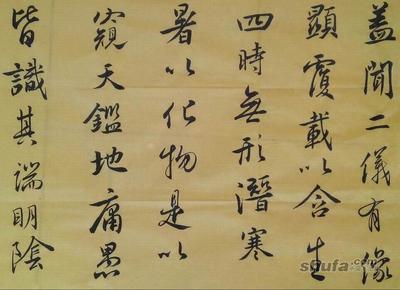 盖聞二儀有像
顯覆載以含生
四時無形潛寒
暑以化物是以
窺天鑑地庸愚
皆識其端明陰